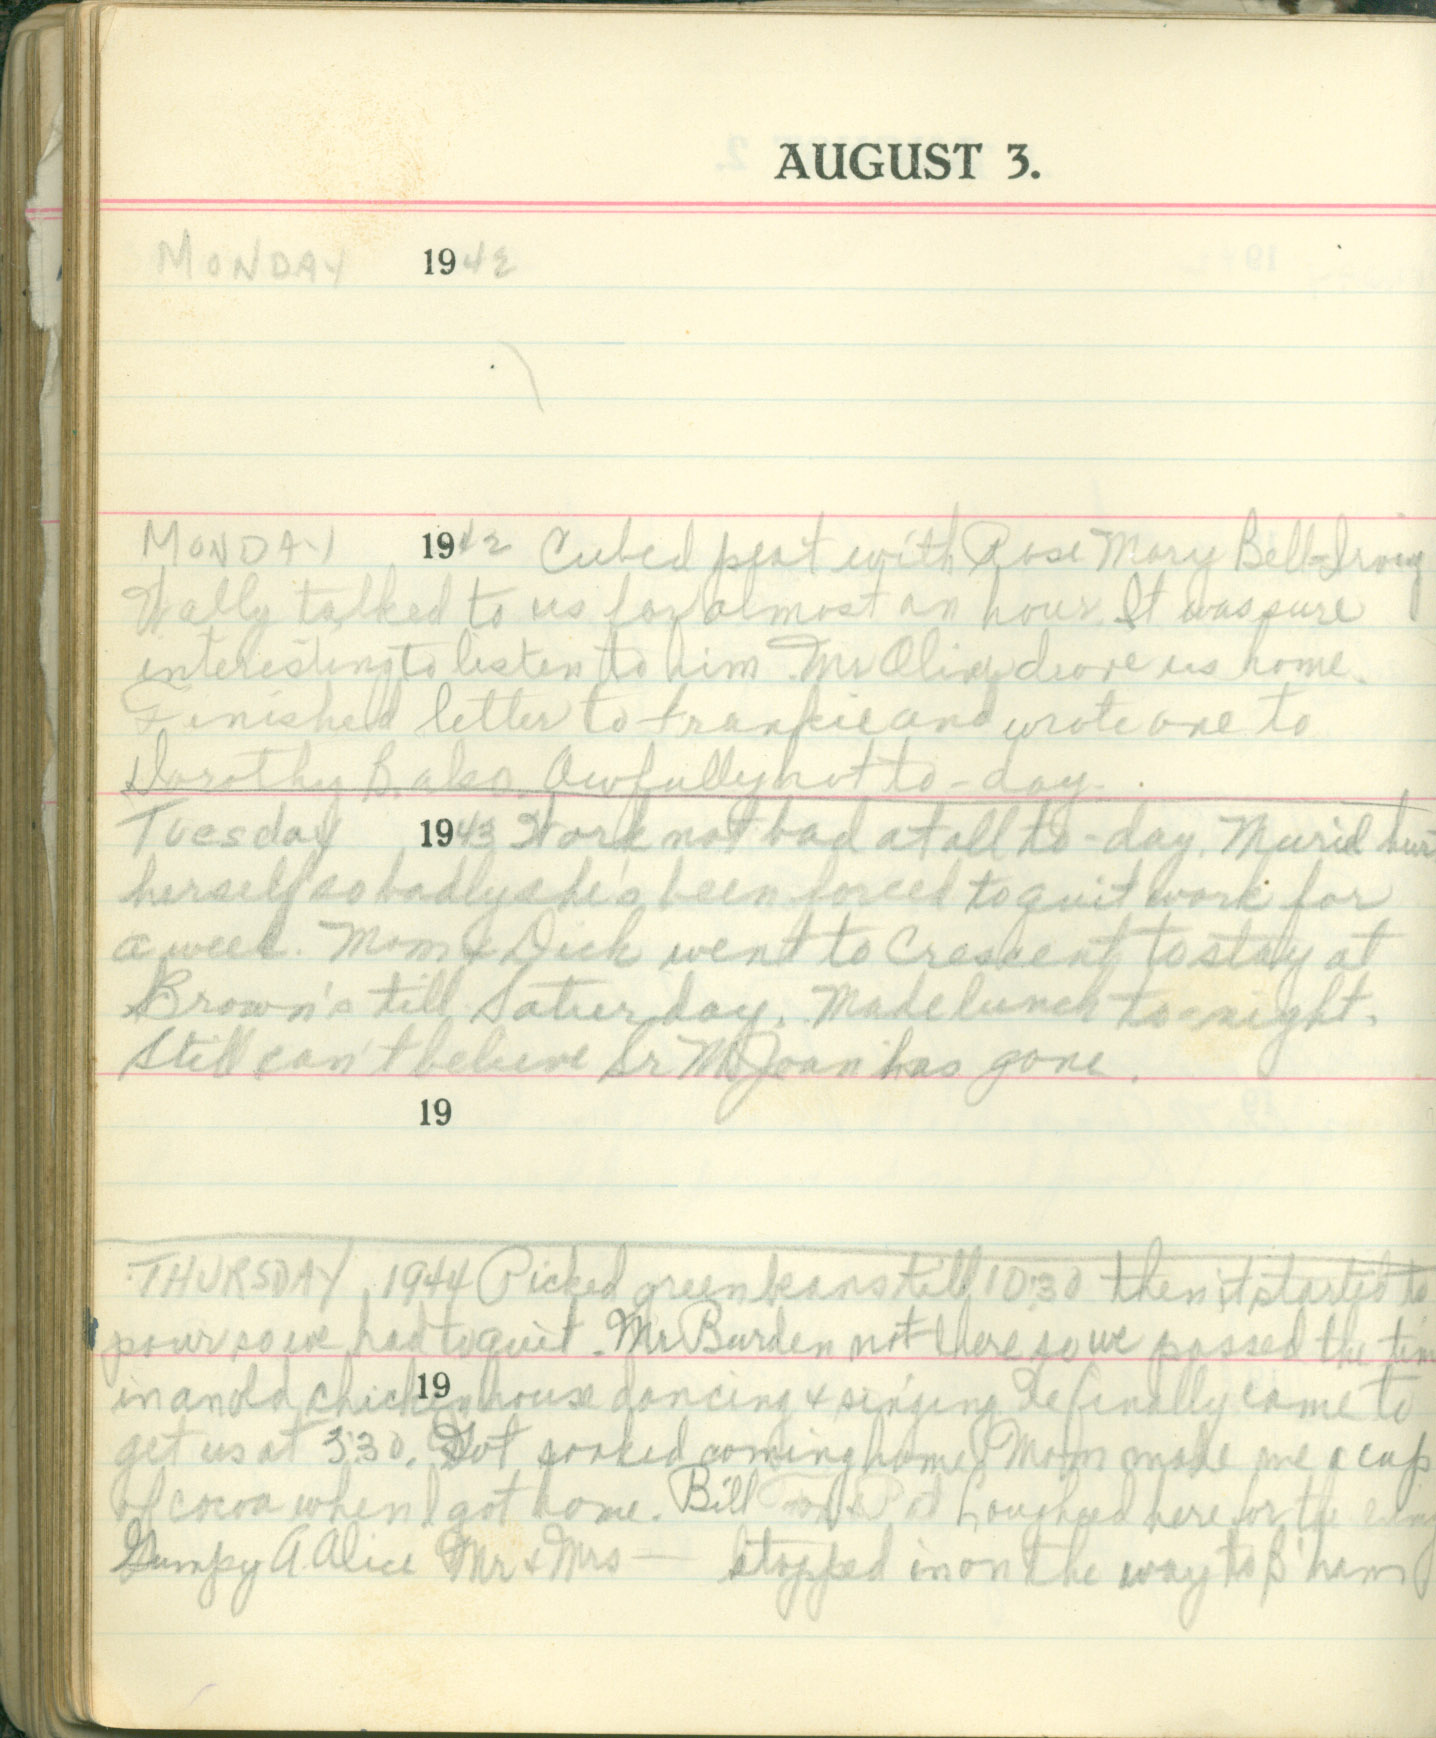 AUGUST 3.
MONDAY 1942
MONDAY 1942 Cubed peat with Rose Mary Bell-Irving
Wally talked to us for almost an hour. It was sure
interesting to listen to him. Mr drove us home.
Finished letter to Frankie and wrote one to
Dorothy B. also. Awfully hot to-day.
Tuesday 1943 Work not bad at all to-day. Muriel hurt
herself so badly she's been forced to quit work for
a week. Mom & Dick went to Crescent to stay at
Brown's till Saturday. Made lunch to-night.
Still can't believe Sr M Joan has gone.
19
THURSDAY 1944 Picked green beans till 10:30 then it started to
pour so we had to quit. Mr Burden not there so we passed the time
19
in an old chicken house dancing & singing. He finally came to
get us at 3:30. Got soaked coming home. Mom made me a cup
of cocoa when I got home. Bill Pat here for the
Gumpy A. Alice Mr & Mrs — stopped in on the way to B'ham